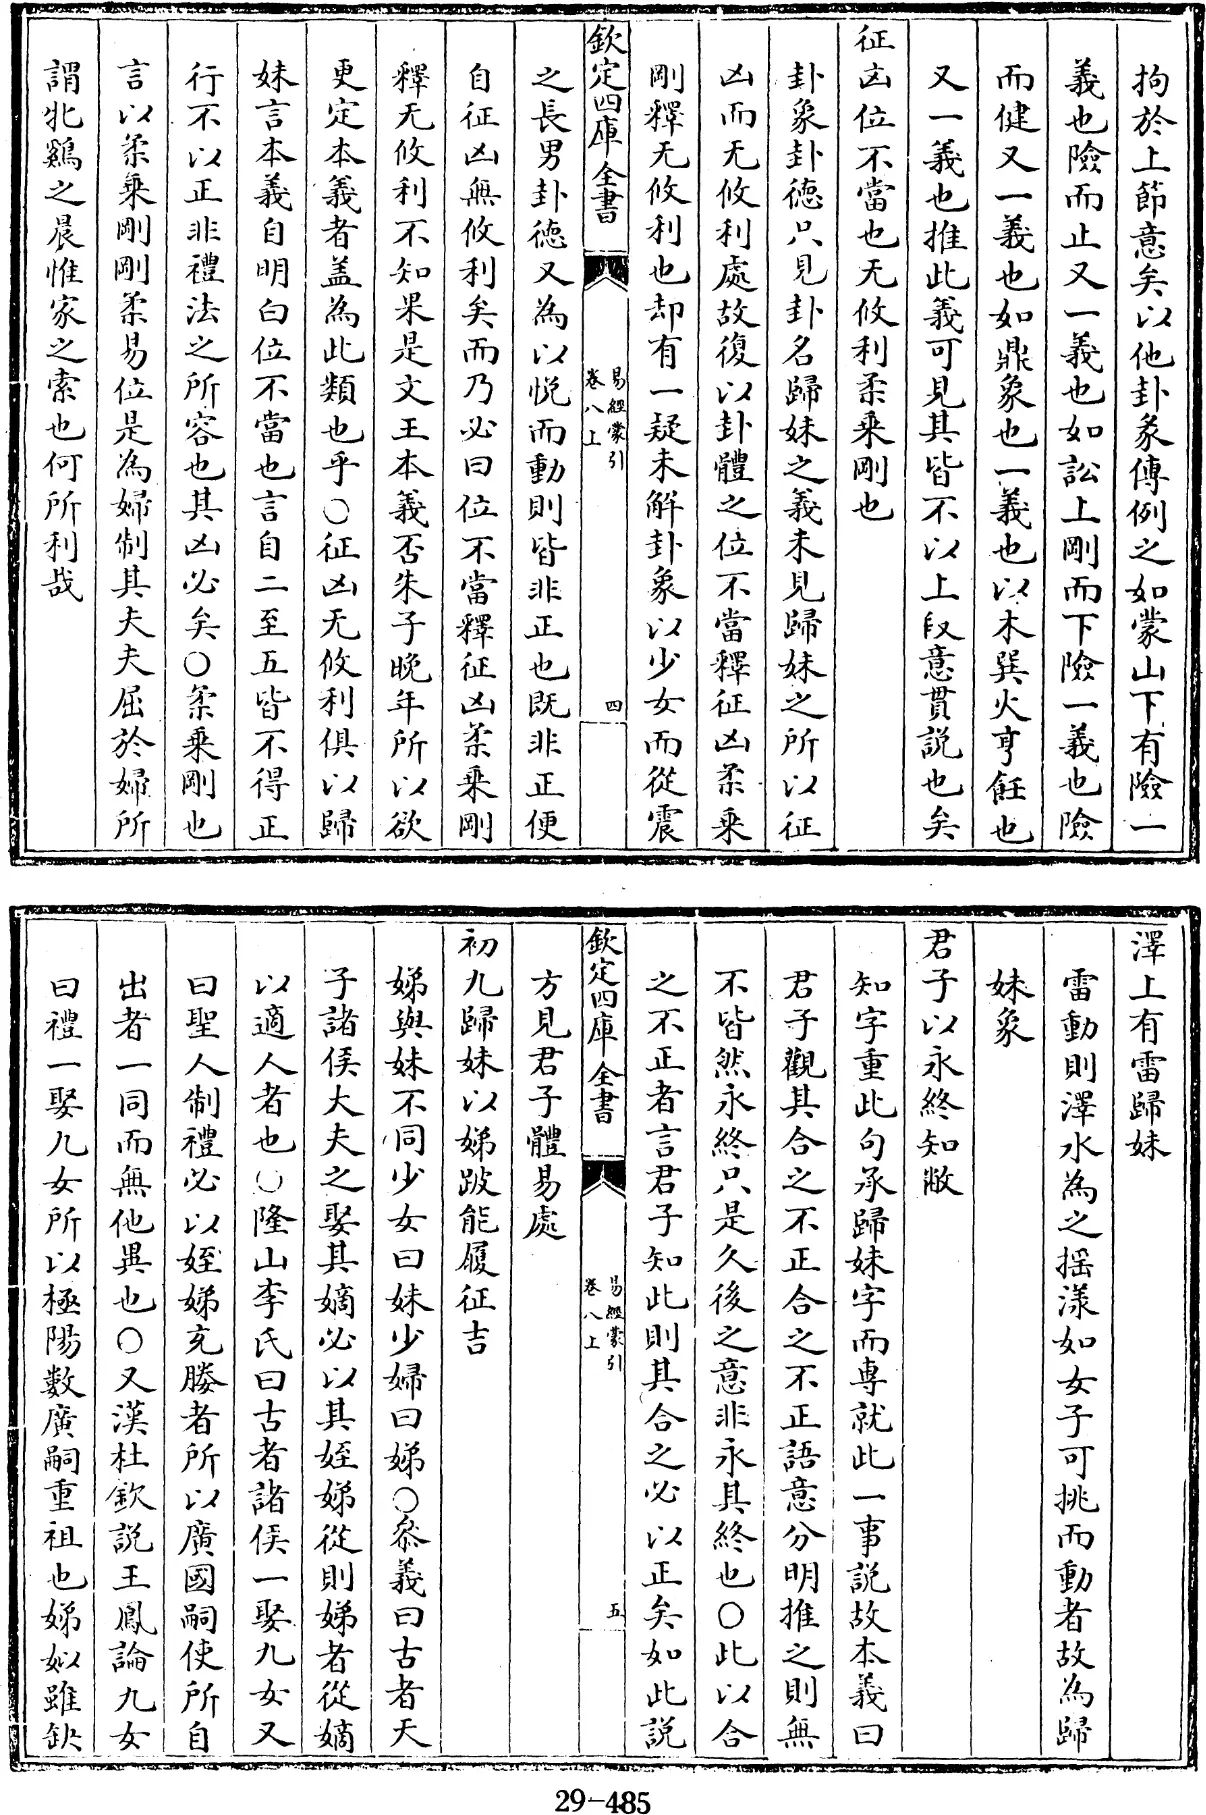 拘於上節意矣以他卦彖傳例之如蒙山下有險一
義也險而止又一義也如訟上剛而下險一義也險
而健又一義也如鼎象也一義也以木巽火亨飪也
又一義也推此義可見其皆不以上段意貫說也矣
征凶位不當也无攸利柔乗剛也
卦象卦德只見卦名歸妹之義未見歸妹之所以征
凶而无攸利處故復以卦體之位不當釋征凶柔乗
剛釋无攸利也却有一疑未解卦象以少女而從震
欽定四庫全書
易經蒙引
卷八上
四
之長男卦德又為以悅而動則皆非正也既非正便
自征凶無攸利矣而乃必曰位不當釋征凶柔乗剛
釋无攸利不知果是文王本義否朱子晚年所以欲
更定本義者盖為此類也乎○征凶无攸利俱以歸
妹言本義自明白位不當也言自二至五皆不得正
行不以正非禮法之所容也其凶必矣○柔乗剛也
言以柔乗剛剛柔易位是為婦制其夫夫屈於婦所
謂牝鷄之晨惟家之索也何所利哉
澤上有雷歸妹
雷動則澤水為之揺漾如女子可挑而動者故為歸
妹象
君子以永終知敝
知字重此句承歸妹字而專就此一事説故本義曰
君子觀其合之不正合之不正語意分明推之則無
不皆然永終只是久後之意非永其終也○此以合
之不正者言君子知此則其合之必以正矣如此説
欽定四庫全書
易經蒙引
卷八上
五
方見君子體易處
初九歸妹以娣跛能履征吉
娣與妹不同少女曰妹少婦曰娣○叅義曰古者天
子諸侯大夫之娶其嫡必以其姪娣從則娣者從嫡
以適人者也○隆山李氏曰古者諸侯一娶九女又
曰聖人制禮必以姪娣充媵者所以廣國嗣使所自
出者一同而無他異也○又漢杜欽説王鳳論九女
曰禮一娶九女所以極陽數廣嗣重祖也娣姒雖缺
29-485